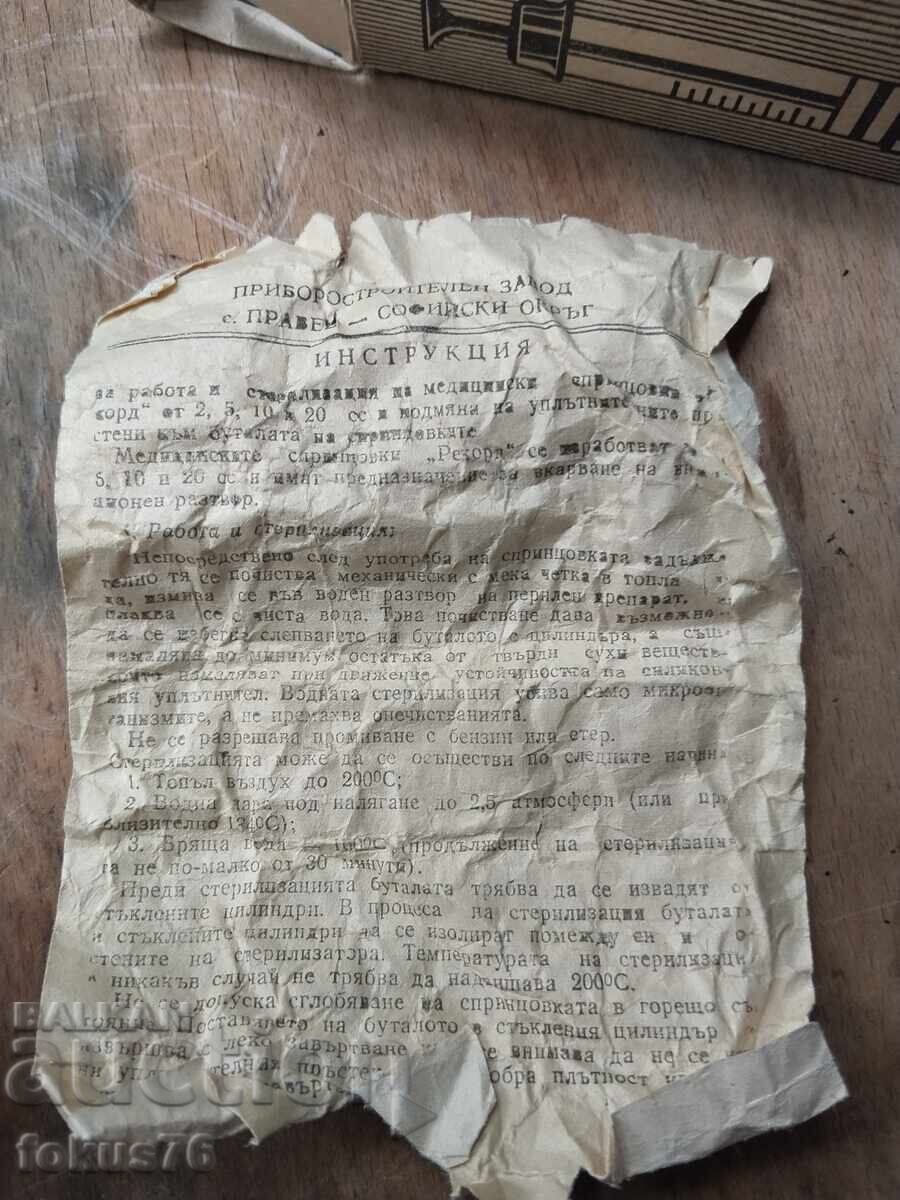 ПРИБОРОСТРОИТЕЛЕН ЗАВОД
с. ПРАВЕЦ — СОФИЙСКИ ОКРЪГ
ИНСТРУКЦИЯ
за работа и стерилизация на медицински спринцовки „
корд“ от 2, 5, 10 и 20 сс и подмяна на уплътнителните
стени към буталата на спринцовките
Медицинските спринцовки „Рекорд“ се изработват
5, 10 и 20 сс и имат предназначение за вкарване на
ционен разтвор.
1. Работа и стерилизация:
Непосредствено след употреба на спринцовката задължи
телно тя се почиства механически с мека четка в топла
да, измива се във воден разтвор на перилен препарат.
плаква се с чиста вода. Това почистване дава възможно
да се избегне слепването на буталото с цилиндъра, а също
намалява до минимум остатъка от твърди сухи вещества
които намаляват при движение устойчивостта на силиконо
вия уплътнител. Водната стерилизация убива само микроор
ганизмите, а не премахва опечистванията.
Не се разрешава промиване с бензин или етер.
Стерилизацията може да се осъществи по следните начини
1. Топъл въздух до 200°С;
2. Водна пара под налягане до 2,5 атмосфери (или при
близително 134°С);
3. Вряща вода — 100°С (продължение на стерилизация
та не по-малко от 30 минути).
Преди стерилизацията буталата трябва да се извадят от
стъклените цилиндри. В процеса на стерилизация буталата
и стъклените цилиндри да се изолират помежду си и от
стените на стерилизатора. Температурата на стерилизация
в никакъв случай не трябва да надвишава 200°С.
Не се допуска сглобяване на спринцовката в горещо със
тояние. Поставянето на буталото в стъкления цилиндър
извършва с леко завъртване се внимава да не се
ни обра плътност
BALKAN
auction
fokus76